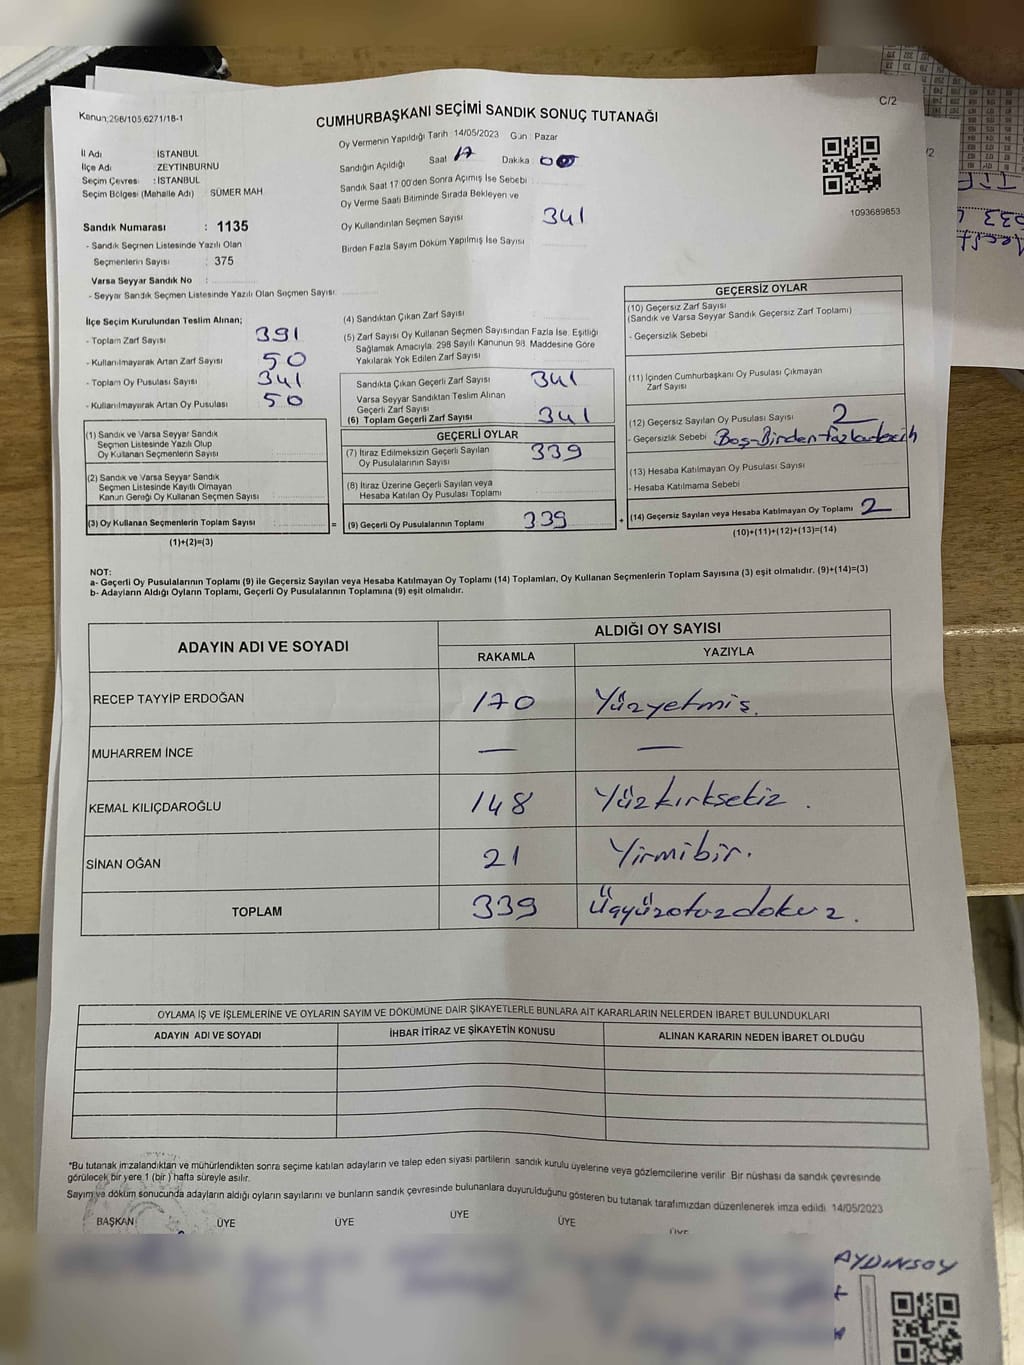 C/2
Kanun:298/105,6271/18-1
CUMHURBAŞKANI SEÇİMİ SANDIK SONUÇ TUTANAĞI
Oy Vermenin Yapıldığı Tarih 14/05/2023 Gün : Pazar
İl Adı : İSTANBUL
İlçe Adı : ZEYTİNBURNU
Seçim Çevresi : İSTANBUL
Seçim Bölgesi (Mahalle Adı) SÜMER MAH
Sandığın Açıldığı Saat 17 Dakika 00
Sandık Saat 17.00'den Sonra Açımış İse Sebebi
Oy Verme Saati Bitiminde Sırada Bekleyen ve
Oy Kullandırılan Seçmen Sayısı 341
Birden Fazla Sayım Döküm Yapılmış İse Sayısı
1093689853
Sandık Numarası : 1135
- Sandık Seçmen Listesinde Yazılı Olan
Seçmenlerin Sayısı : 375
Varsa Seyyar Sandık No :
- Seyyar Sandık Seçmen Listesinde Yazılı Olan Seçmen Sayısı:
İlçe Seçim Kurulundan Teslim Alınan;
- Toplam Zarf Sayısı 391
- Kullanılmayarak Artan Zarf Sayısı 50
- Toplam Oy Pusulası Sayısı 341
- Kullanılmayarak Artan Oy Pusulası 50
(4) Sandıktan Çıkan Zarf Sayısı
(5) Zarf Sayısı Oy Kullanan Seçmen Sayısından Fazla İse, Eşitliği
Sağlamak Amacıyla, 298 Sayılı Kanunun 98. Maddesine Göre
Yakılarak Yok Edilen Zarf Sayısı
Sandıkta Çıkan Geçerli Zarf Sayısı 341
Varsa Seyyar Sandıktan Teslim Alınan
Geçerli Zarf Sayısı
(6) Toplam Geçerli Zarf Sayısı 341
GEÇERLİ OYLAR
(7) İtiraz Edilmeksizin Geçerli Sayılan
Oy Pusulalarının Sayısı 339
(8) İtiraz Üzerine Geçerli Sayılan veya
Hesaba Katılan Oy Pusulası Toplamı
(9) Geçerli Oy Pusulalarının Toplamı 339
GEÇERSİZ OYLAR
(10) Geçersiz Zarf Sayısı
(Sandık ve Varsa Seyyar Sandık Geçersiz Zarf Toplamı)
- Geçersizlik Sebebi
(11) İçinden Cumhurbaşkanı Oy Pusulası Çıkmayan
Zarf Sayısı
(12) Geçersiz Sayılan Oy Pusulası Sayısı 2
- Geçersizlik Sebebi Boş-Birden fazla tercih
(13) Hesaba Katılmayan Oy Pusulası Sayısı
- Hesaba Katılmama Sebebi
(14) Geçersiz Sayılan veya Hesaba Katılmayan Oy Toplamı 2
(10)+(11)+(12)+(13)=(14)
(1) Sandık ve Varsa Seyyar Sandık
Seçmen Listesinde Yazılı Olup
Oy Kullanan Seçmenlerin Sayısı
(2) Sandık ve Varsa Seyyar Sandık
Seçmen Listesinde Kayıtlı Olmayan
Kanun Gereği Oy Kullanan Seçmen Sayısı
(3) Oy Kullanan Seçmenlerin Toplam Sayısı = +
(1)+(2)=(3)
NOT:
a- Geçerli Oy Pusulalarının Toplamı (9) ile Geçersiz Sayılan veya Hesaba Katılmayan Oy Toplamı (14) Toplamları, Oy Kullanan Seçmenlerin Toplam Sayısına (3) eşit olmalıdır. (9)+(14)=(3)
b- Adayların Aldığı Oyların Toplamı, Geçerli Oy Pusulalarının Toplamına (9) eşit olmalıdır.
ADAYIN ADI VE SOYADI ALDIĞI OY SAYISI
RAKAMLA YAZIYLA
RECEP TAYYİP ERDOĞAN 170 Yüzyetmiş.
MUHARREM İNCE — —
KEMAL KILIÇDAROĞLU 148 Yüzkırksekiz.
SİNAN OĞAN 21 Yirmibir.
TOPLAM 339 Üçyüzotuzdokuz.
OYLAMA İŞ VE İŞLEMLERİNE VE OYLARIN SAYIM VE DÖKÜMÜNE DAİR ŞİKAYETLERLE BUNLARA AİT KARARLARIN NELERDEN İBARET BULUNDUKLARI
ADAYIN ADI VE SOYADI İHBAR İTİRAZ VE ŞİKAYETİN KONUSU ALINAN KARARIN NEDEN İBARET OLDUĞU
*Bu tutanak imzalandıktan ve mühürlendikten sonra seçime katılan adayların ve talep eden siyasi partilerin sandık kurulu üyelerine veya gözlemcilerine verilir. Bir nüshası da sandık çevresinde
görülecek bir yere 1 (bir) hafta süreyle asılır.
Sayım ve döküm sonucunda adayların aldığı oyların sayılarını ve bunların sandık çevresinde bulunanlara duyurulduğunu gösteren bu tutanak tarafımızdan düzenlenerek imza edildi. 14/05/2023
BAŞKAN ÜYE ÜYE ÜYE ÜYE ÜYE
AYDINSOY